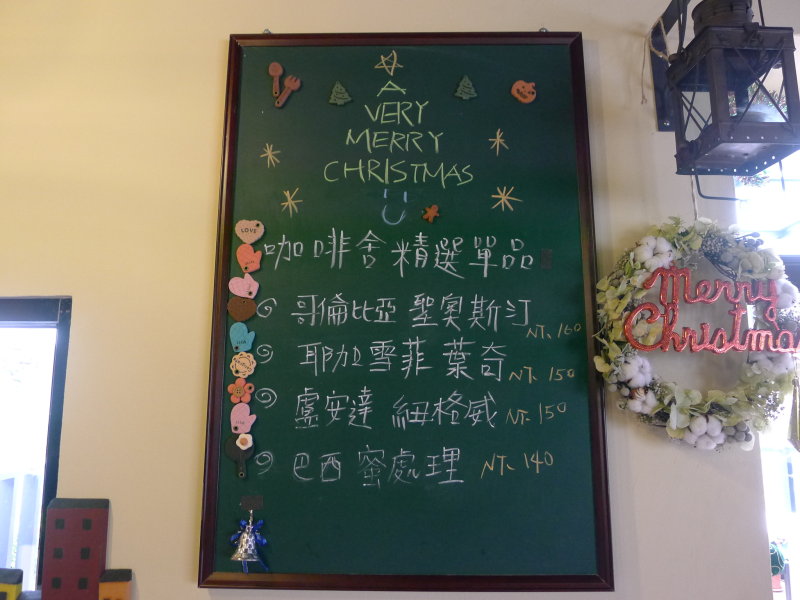 A
VERY
MERRY
CHRISTMAS
咖啡舍 精選單品
哥倫比亞 聖奧斯汀 NT. 160
耶加雪菲 葉奇 NT. 150
盧安達 紐格威 NT. 150
巴西 蜜處理 NT. 140
LOVE
Merry
Christma